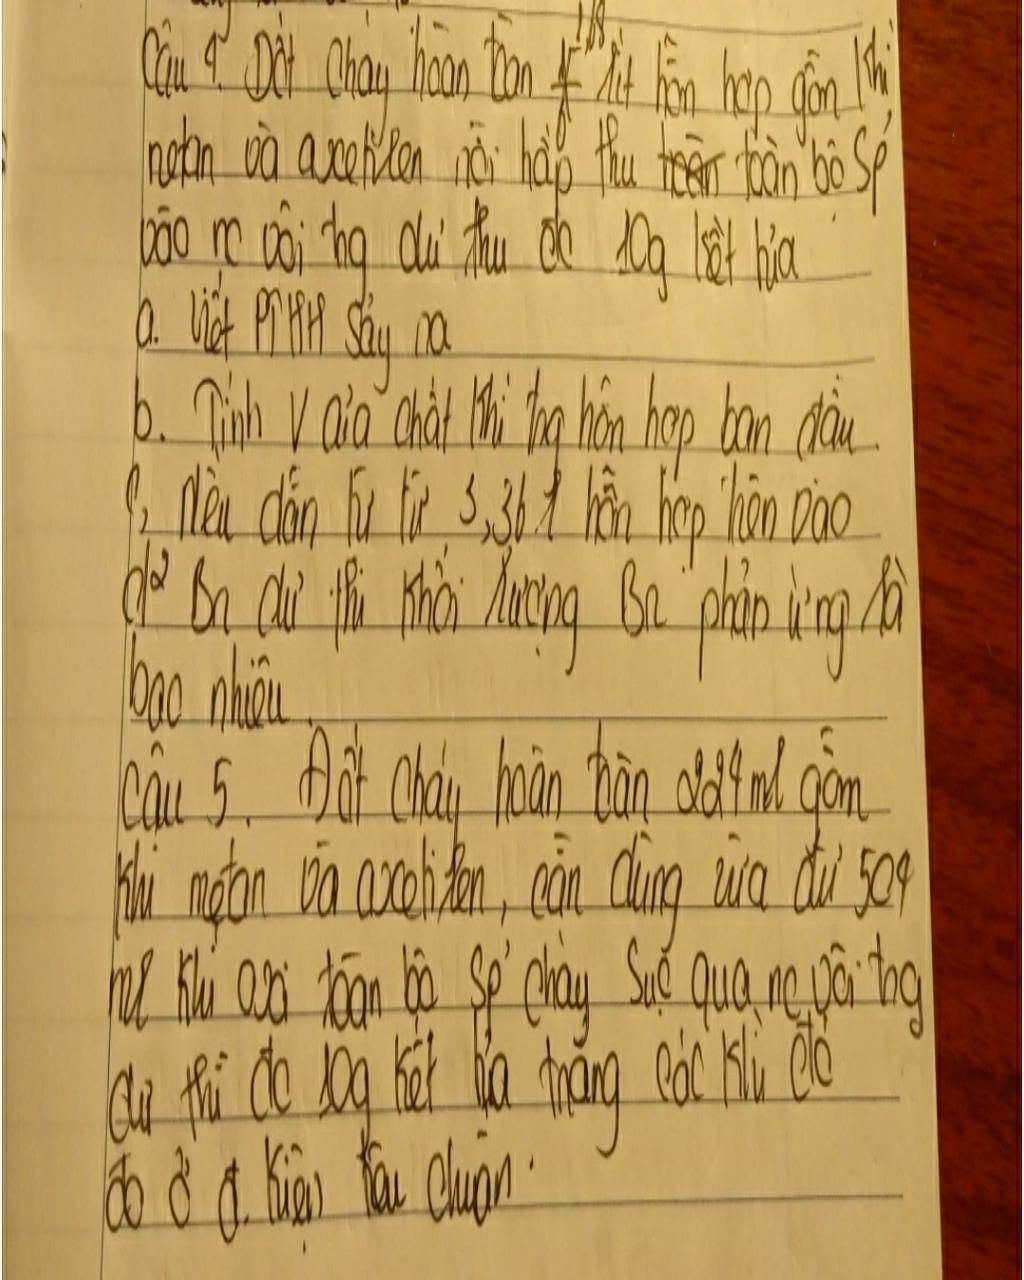 Câu 4. Đốt cháy hoàn toàn lít hỗn hợp gồm khí
metan và axetilen rồi hấp thu toàn bộ Sp
vào nc vôi tng dư thu đc 10g kết tủa
a. Viết PTHH sảy ra
b. Tính V của chất khí tng hỗn hợp ban đầu.
c, Nếu dẫn từ từ 3,36 l hỗn hợp trên vào
d² Br dư thì khối lượng Br phản ứng là
bao nhiêu.
Câu 5. Đốt cháy hoàn toàn 224 ml gồm
khí mêtan và axetilen, cần dùng vừa đủ 504
ml khí oxi toàn bộ Sp cháy Sục qua nc vôi tng
dư thì đc 10g kết tủa trắng các khí đó
đo ở đ. kiện tiêu chuẩn.